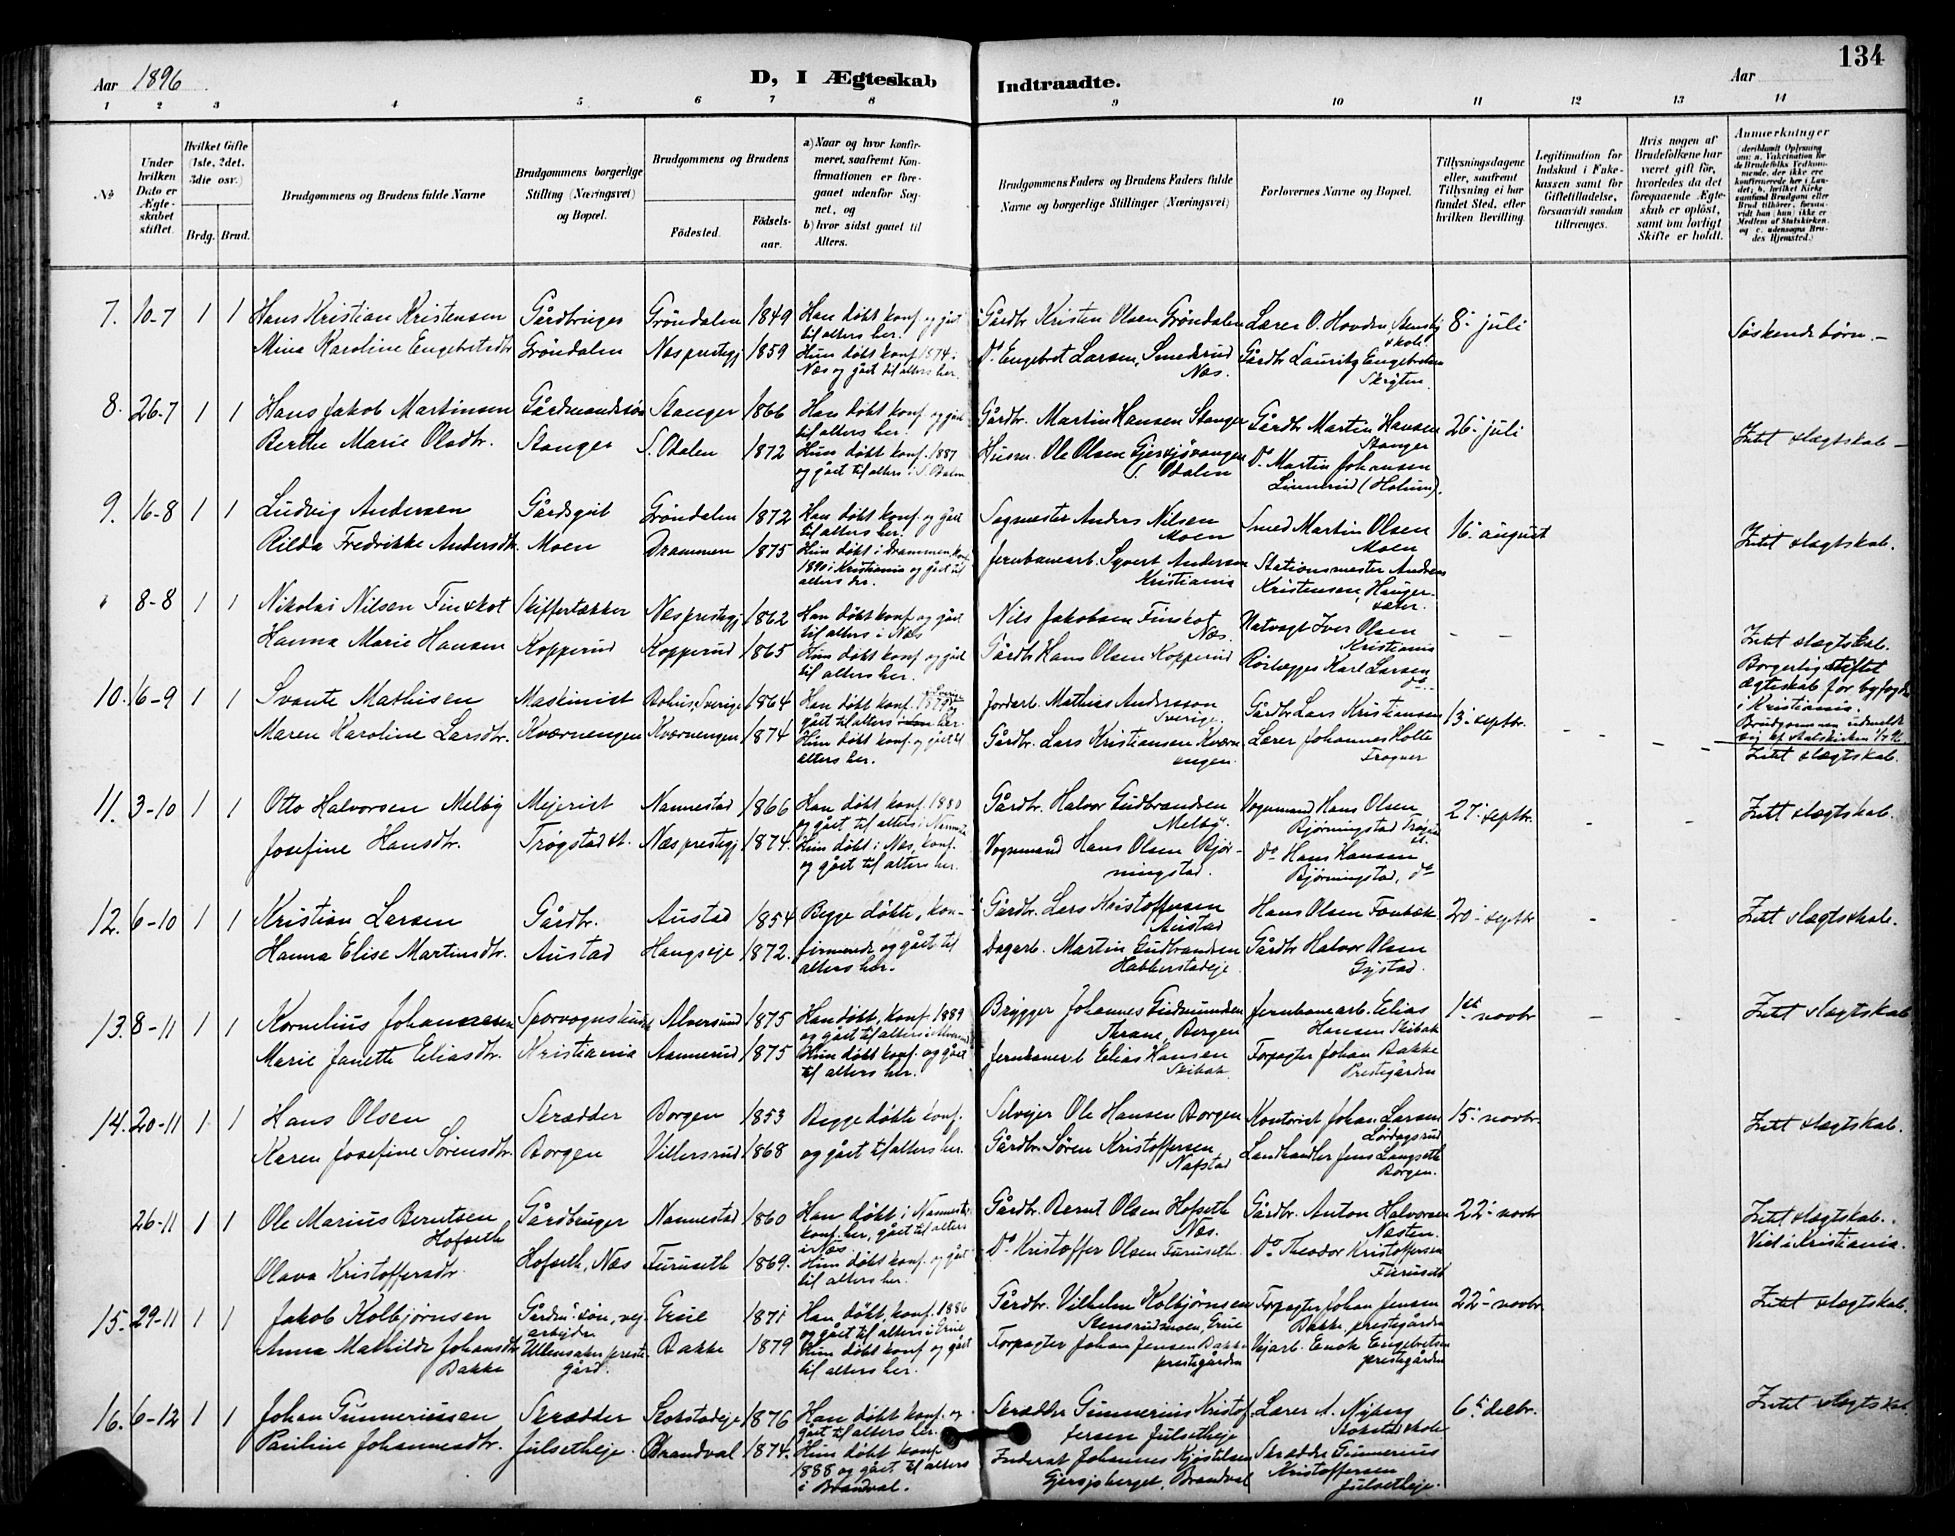 134
Aar 1896
D, I Ægteskab
Indtraadte.
Aar
1 2 3 4 5 6 7 8 9 10 11 12 13 14
№
Under hvilken Dato er Ægteskabet stiftet.
Hvilket Gifte (1ste, 2det, 3die osv.)
Brdg. Brud.
Brudgommens og Brudens fulde Navne
Brudgommens borgerlige Stilling (Næringsvei) og Bopæl.
Brudgommens og Brudens
Fødested.
Fødsels-aar.
a) Naar og hvor konfirmeret, saafremt Konfirmationen er foregaaet udenfor Sognet, og
b) hvor sidst gaaet til Alters.
Brudgommens Faders og Brudens Faders fulde Navne og borgerlige Stillinger (Næringsvei)
Forlovernes Navne og Bopæl.
Tillysningsdagene eller, saafremt Tillysning ei har fundet Sted, efter hvilken Bevilling.
Legitimation for Indskud i Enkekassen samt for Giftetilladelse, forsaavidt saadan tiltrænges.
Hvis nogen af Brudefolkene har været gift før, hvorledes da det foregaaende Ægteskab er opløst, samt om lovligt Skifte er holdt.
Anmærkninger
7. 10-7 1 1 Hans Kristian Kristensen Gårdbruger Grøndalen 1849 Han døbt konf. og gået til alters her. Gårdbr. Kristen Olsen Grøndalen Lærer O. Hovden, Stensby skole 8. juli Søskendebørn.-
Mina Karoline Engebretsdtr. Grøndalen Næs prestegj. 1859 Hun døbt konf. 1874 i Næs og gået til alters her. Do Engebret Larsen, Smedsrud Næs. Gårdbr. Lauritz Engebretsen
8. 26-7 1 1 Hans Jakob Martinsen Gårdmandssøn Stanger 1866 Han døbt konf. og gået til alters her. Gårdbr. Martin Hansen Stanger Gårdbr. Martin Hansen Stanger 26. juli Intet slægtskab -
Berthe Marie Olsdtr. Stanger S. Odalen 1872 Hun døbt konf. 1887 og gået til alters i S. Odalen Husm. Ole Olsen S. Odalen Do Martin Johansen Linnerud (Holum).
9. 16-8 1 1 Ludvig Andersen Gårdsgut Grøndalen 1872 Han døbt konf. og gået til alters her. Sagmester Anders Nilsen Moen Smed Martin Olsen Moen 16. august Intet slægtskab.
Rilda Fredrikke Andersdtr. Moen Drammen 1875 Hun døbt i Drammen, konf. 1890 i Kristiania og gået til alters do. Jernbanearb. Syvert Andersen Kristiania Stationsmester Andreas Kristensen, Haugersæter.
8-8 1 1 Nikolai Nilsen Finskot Skiffertækker Næs prestegj. 1862 Han døbt konf. og gået til alters i Næs Nils Jakobsen Finskot Næs. Natvagt Iver Olsen Kristiania - - Intet slægtskab.
Hanna Marie Hansen Kopperud Kopperud 1865 Hun døbt konf. og gået til alters her. Gårdbr. Hans Olsen Kopperud Rørlægger Karl Larsen do. Borgerlig stiftet ægteskab for byfogden i Kristiania. Brudgommen udmeldt sig af statskirken
10. 6-9 1 1 Svante Mathisen Maskinist Bohus, Sverige 1864 Han døbt konf. i Sverige og gået til alters her. Jordarb. Mathias Andersson Sverige. Gårdbr. Lars Kristiansen 13. septbr. Intet slægtskab.
Maren Karoline Larsdtr. Kværnengen Kværnengen 1874 Hun døbt konf. og gået til alters her. Gårdbr. Lars Kristiansen Kværnengen. Lærer Johannes Holte Frogner
11. 3-10 1 1 Otto Halvorsen Melby Mejerist Nannestad 1866 Han døbt konf. 1880 og gået til alters i Nannestad Gårdbr. Halvor Gudbrandsen Melby. Vognmand Hans Olsen Bjørningstad Trøgstad st. 27. septbr. Intet slægtskab.
Josefine Hansdtr. Trøgstad st. Næs prestegj. 1874. Hun døbt i Næs, konf. og gået til alters her. Vognmand Hans Olsen Bjørningstad. Do Hans Hansen Bjørningstad, do
12. 6-10 1 1 Kristian Larsen Gårdbr. Austad 1854 Begge døbte, kon- Gårdbr. Lars Kristoffersen Austad Hans Olsen Fonbæk 20. septbr. Intet slægtskab.
Hanna Elise Martinsdtr. Austad Haugseje 1872. firmerede og gået til alters her. Dagarb. Martin Gudbrandsen Habberstadeje Gårdbr. Halvor Olsen Gystad.
13. 8-11 1 1 Kornelius Johannesen Sporvognskusk Alversund 1875 Han døbt, konf. 1889 og gået til alters i Alversund Brygger Johannes Gudmundsen Thrane, Bergen Jernbanearb. Elias Hansen Skibak 1ste novbr Intet slægtskab
Marie Janette Eliasdtr. Kristiania Aamnerud 1875 Hun døbt konf. og gået til alters her. Jernbanearb Elias Hansen Skibak. Forpagter Johan Bakke Prestegården
14. 20-11 1 1 Hans Olsen Skrædder Borgen 1853 Begge døbte konf. Selvejer Ole Hansen Borgen Kontorist Johan Larsen Lørdagsrud 15. novbr. Intet slægtskab.
Karen Josefine Sørensdtr. Borgen Villersrud 1868 og gået til alters her. Gårdbr. Søren Kristoffersen Nafstad Landhandler Jens Langseth Borgen.
26-11 1 1 Ole Marius Berntsen Hofseth Gårdbruger Nannestad 1860 Han døbt i Nannestad, konf. her, gået til alters i Næs. Gårdbr. Bernt Olsen Hofseth Næs. Gårdbr. Anton Halvorsen Næsten. 22. novbr Intet slægtskab. Viet i Kristiania.
Olava Kristoffersdtr. Hofseth, Næs Furuseth 1869. Hun døbt konf. og gået til alters her. Do Kristoffer Olsen Furuseth. Do Theodor Kristoffersen Furuseth
15. 29-11 1 1 Jakob Kolbjørnsen Gårdm. søn, vejarbejder Grue 1871 Han døbt, konf. 1886 og gået til alters i Grue Gårdbr. Vilhelm Kolbjørnsen Stensrudmoen, Grue Forpagter Johan Jensen Bakke, prestegården 22. novbr. Intet slægtskab.
Anna Mathilde Johansdtr. Bakke Ullensaker prestegård. Bakke 1879 Hun døbt konf. og gået til alters her. Forpagter Johan Jensen Bakke prestegården Vejarb. Enok Engebretsen prestegården
16. 6-12 1 1 Johan Gunneriussen Skrædder Stokstadeje 1876 Han døbt konf. og gået til alters her. Skrædder Gunnerius Kristoffersen Julsetheje Lærer A. Nyberg Stokstad skole 6. decbr. Intet slægtskab
Pauline Johannesdtr. Julsetheje. Brandval 1874. Hun døbt konf. 1888 og gået til alters i Brandval. Inderst Johannes Kjøstelsen Brandval Skrædder Gunnerius Kristoffersen Julsetheje.